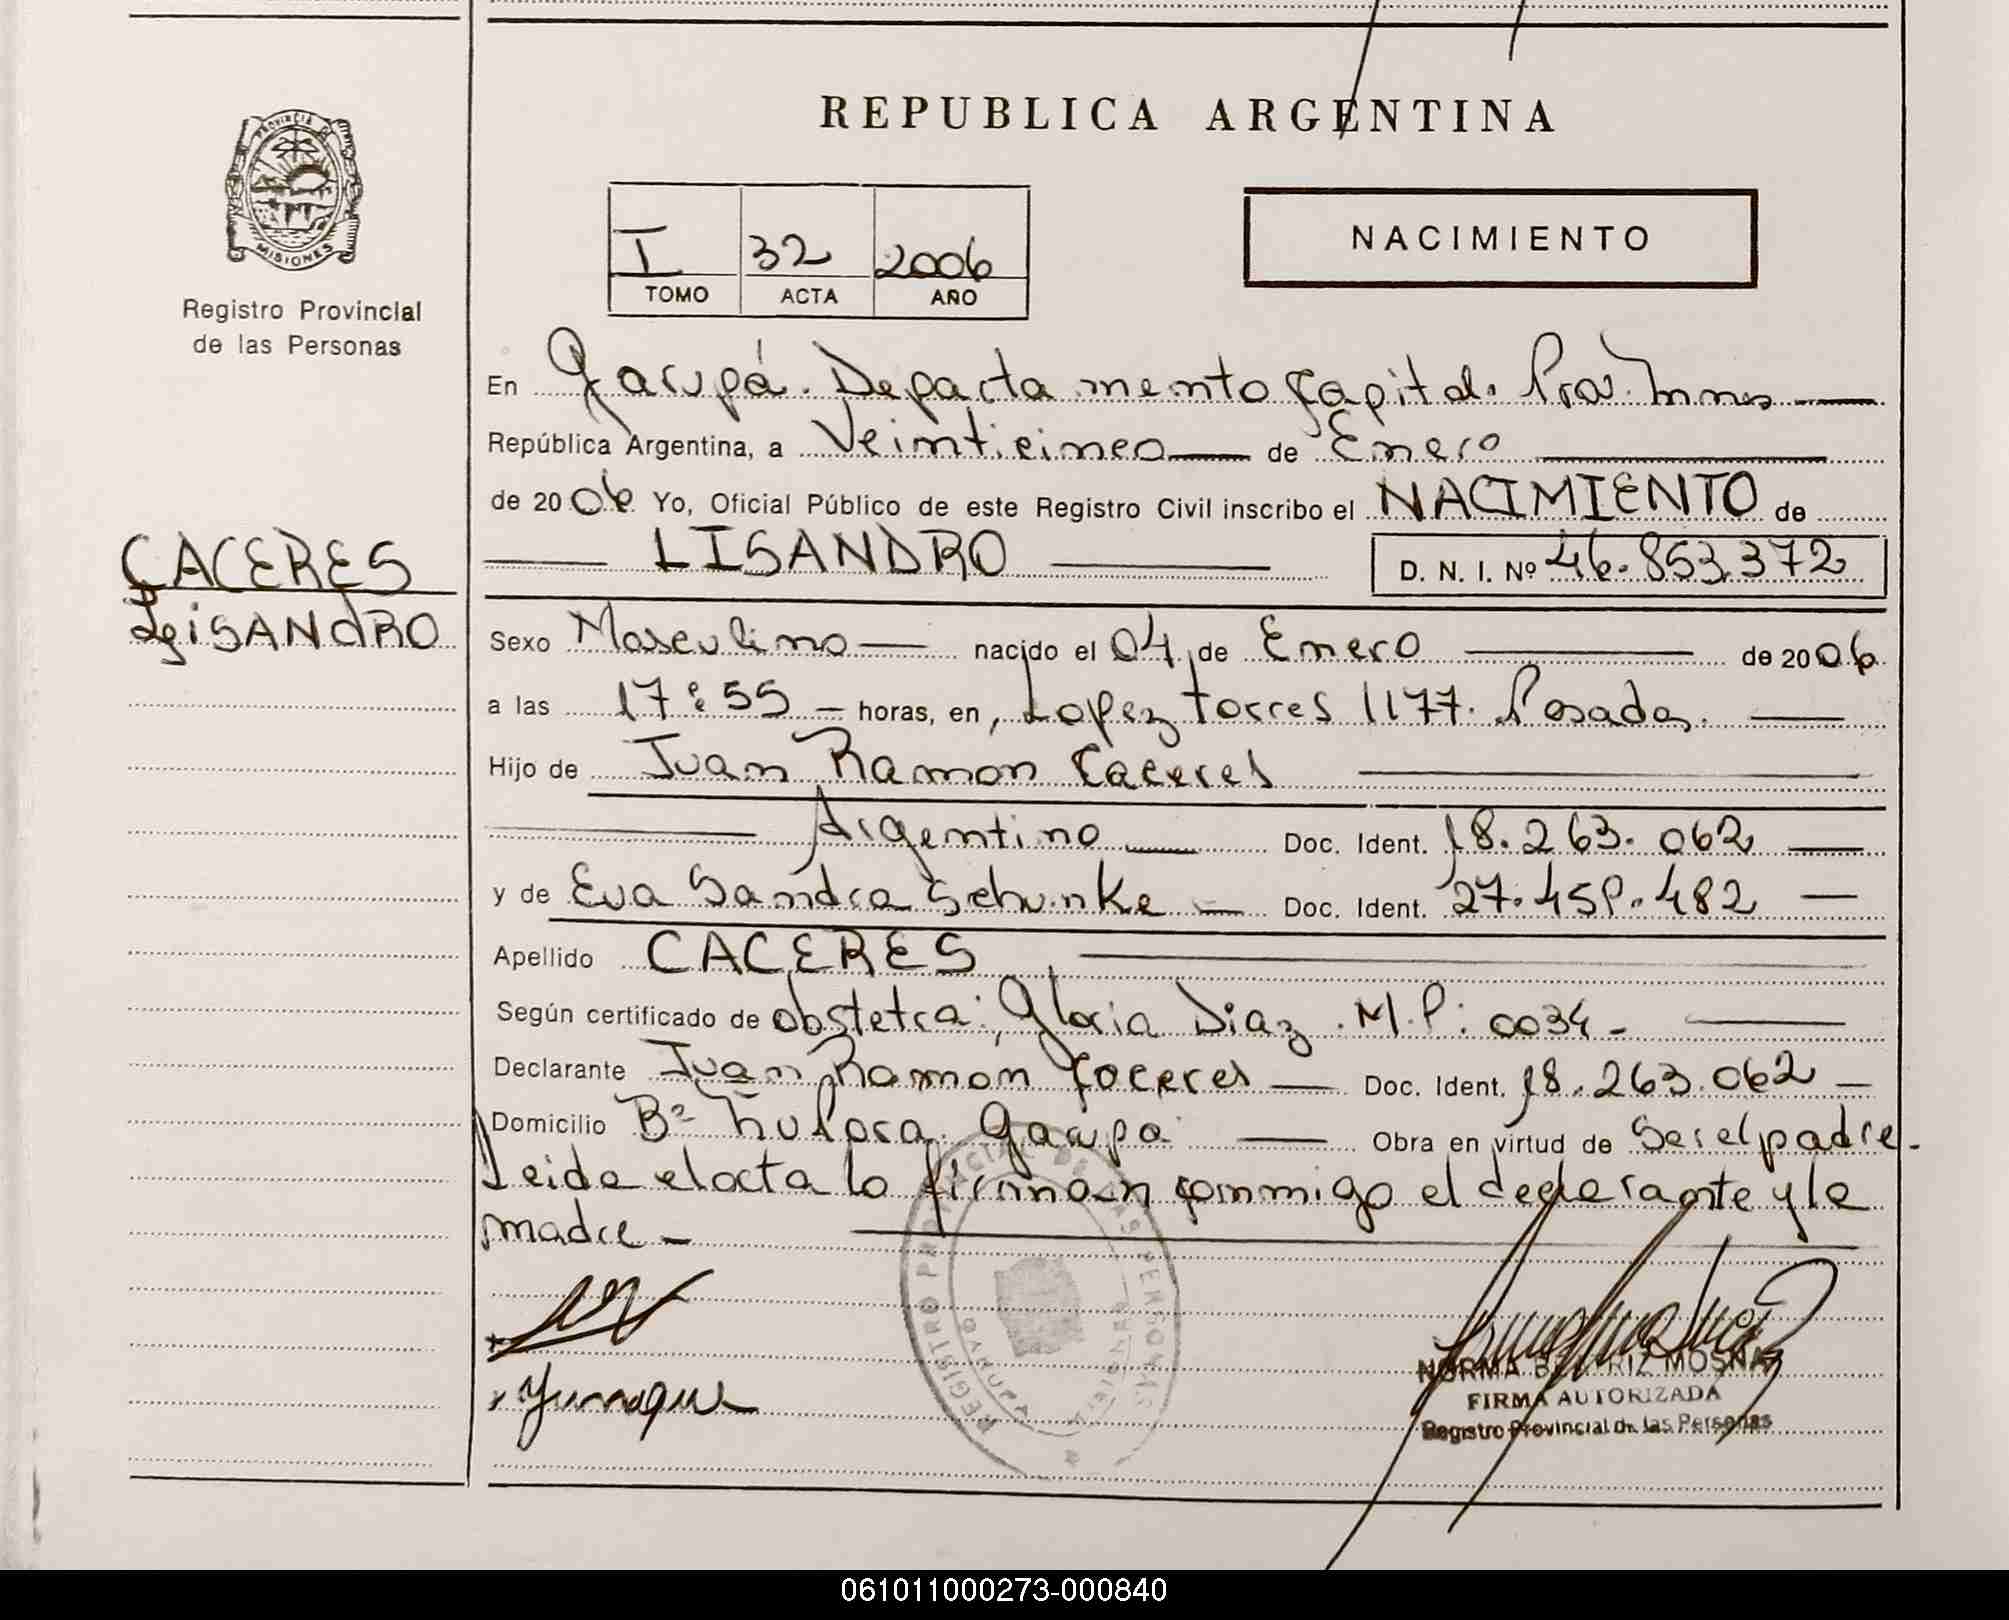 REPUBLICA ARGENTINA
PROVINCIA DE
MISIONES
Registro Provincial
de las Personas
I 32 2006
TOMO ACTA AÑO
NACIMIENTO
En Garupá. Departamento Capital. Prov. Mnes
República Argentina, a Veinticinco de Enero
de 2006 Yo, Oficial Público de este Registro Civil inscribo el NACIMIENTO de
LISANDRO D. N. I. Nº 46.853.372
CACERES
LISANDRO
Sexo Masculino nacido el 04 de Enero de 2006
a las 17:55 horas, en, Lopez Torres 1177. Posadas.
Hijo de Juan Ramon Caceres
Argentino Doc. Ident. 18.263.062
y de Eva Sandra Schunke Doc. Ident. 27.458.482
Apellido CACERES
Según certificado de obstetra: Gloria Diaz. M.P: 0034-
Declarante Juan Ramon Caceres Doc. Ident. 18.263.062
Domicilio Bº Garupa Obra en virtud de Ser el padre.
Leida el acta la firman conmigo el declarante y la
madre
REGISTRO PROVINCIAL DE LAS PERSONAS
NORMA BEATRIZ MOSNA
FIRMA AUTORIZADA
Registro Provincial de las Personas
061011000273-000840